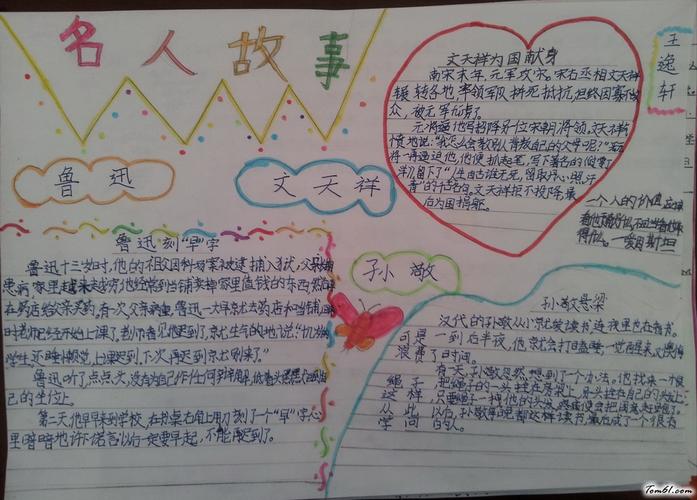 名人故事
王逸轩
文天祥为国献身
南宋末年,元军攻宋,宋右丞相文天祥
辗转各地,率领军队拼死抵抗,但终因寡
众,被元军俘虏了。
元将逼他写招降另一位宋朝将领,文天祥
愤地说:"我怎么会教别人背叛自己的父母呢?"
将一再逼迫他,他便抓起笔,写下著名的
洋》,留下了"人生自古谁无死,留取丹心照汗
青"的千古名句,文天祥拒不投降,最
后为国捐躯。
鲁迅
文天祥
一个人的价值,应该
看他贡献什么,不应当看他取
得什么。 —爱因斯坦
鲁迅刻"早"字
鲁迅十三岁时,他的祖父因科场案被逮捕入狱,父亲
患病,家里越来越穷,他经常到当铺卖掉家里值钱的东西,然后
在药店给父亲买药,有一次父亲病重,鲁迅一大早就去药店和当铺,
时老师已经开始上课了,老师看见他迟到了,就生气的地说:"十几岁
学生,还睡懒觉,上课迟到,下次再迟到就别来了。"
鲁迅听了,点点头,没有为自己作任何
己的坐位上。
第二天他早早来到学校,在书桌右角上用刀刻了一个"早"字,心
里暗暗地许下诺言:以后一定要早起,不能再迟到了。
孙敬
孙敬悬梁
汉代的孙敬从小就爱读书,连夜里也在看书。
可是一到后半夜,他就会打瞌睡,一觉醒来,又
浪费了时间。
有一天,孙敬忽然想到了一个办法。他找来一根
绳子,把绳子的一头拴在房梁上,另一头拴在自己的头发上,
这样,只要绳子一扯他的头发,
从此以后,孙敬每晚都这样读书,最后成了一个很有
学问的人。
Tom61.com